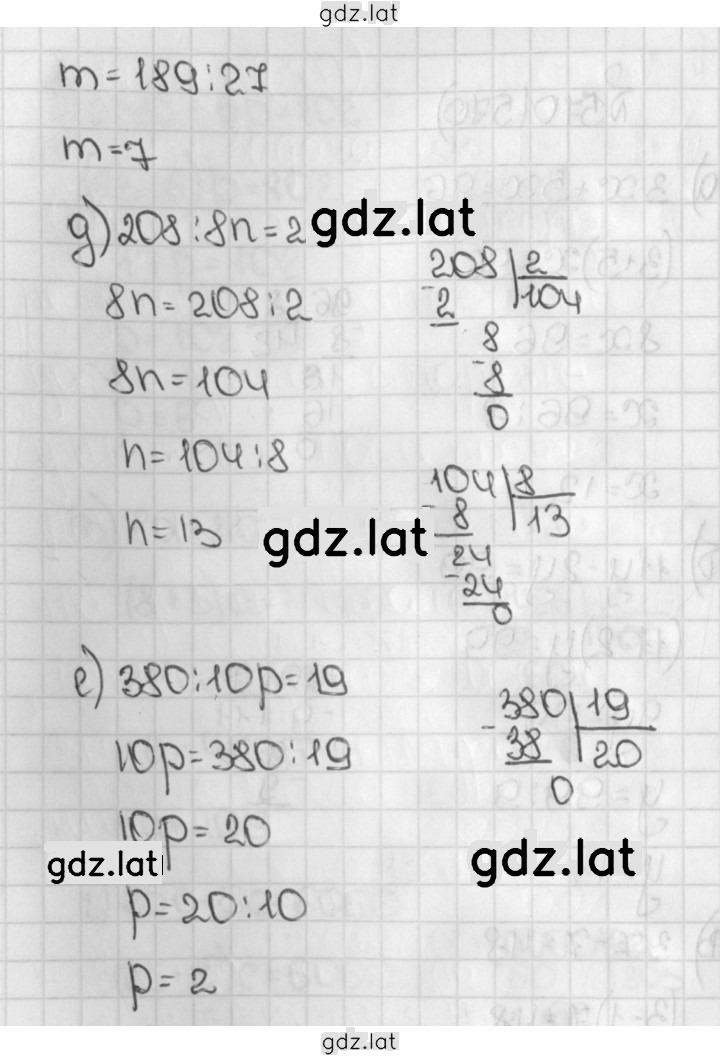 gdz.lat
m=189:27
m=7
д) 208:8n=2
gdz.lat
8n=208:2
208 2
- 2 104
8
- 8
0
8n=104
n=104:8
n=13
104 8
- 8 13
24
- 24
0
gdz.lat
е) 380:10p=19
10p=380:19
380 19
- 38 20
0
10p=20
gdz.lat
gdz.lat
p=20:10
p=2
gdz.lat